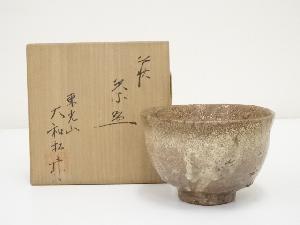 萩
茶碗
東光山
大和松緑